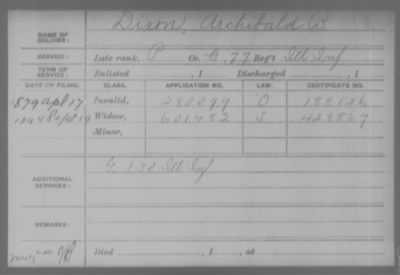 NAME OF SOLDIER: Dixon, Archibald B
SERVICE: Late rank, P Co. G, 77 Reg't Ill Inf
TERM OF SERVICE: Enlisted , 1 Discharged , 1
DATE OF FILING. CLASS. APPLICATION NO. LAW. CERTIFICATE NO.
1879 apl 17 Invalid, 280099 O 188126
1894 Sept 19 Widow, 601482 S 428867
Minor,
ADDITIONAL SERVICES: G 130 Ill Inf
REMARKS:
Died , 1 , at